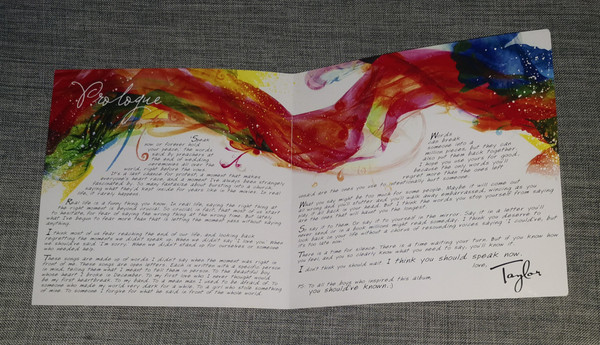 Prologue
"Speak
now or forever hold
your peace." The words
said by preachers at
the end of wedding
ceremonies all over the
world, right before the vows.
It's a last chance for protest, a moment that makes
everyone's heart race, and a moment I've always been strangely
fascinated by. So many fantasize about bursting into a church,
saying what they'd kept inside for years like in the movies. In real
life, it rarely happens.
Real life is a funny thing you know. In real life, saying the right thing at
the right moment is beyond crucial. So crucial, in fact, that most of us start
to hesitate, for fear of saying the wrong thing at the wrong time. But lately
what I've begun to fear more than that is letting the moment pass without saying
anything.
I think most of us fear reaching the end of our life, and looking back
regretting the moments we didn't speak up. When we didn't say "I love you." When
we should've said "I'm sorry." When we didn't stand up for ourselves or someone
who needed help.
These songs are made up of words I didn't say when the moment was right in
front of me. These songs are open letters. Each is written with a specific person
in mind, telling them what I meant to tell them in person. To the beautiful boy
whose heart I broke in December. To my first love who I never thought would
be my first heartbreak. To my band. To a mean man I used to be afraid of. To
someone who made my world very dark for a while. To a girl who stole something
of mine. To someone I forgive for what he said in front of the whole world.
Words
can break
someone into a
million pieces, but they can
also put them back together.
I hope you use yours for good,
because the only words you'll
regret more than the ones left
unsaid are the ones you use to intentionally hurt someone.
What you say might be too much for some people. Maybe it will come out
all wrong and you'll stutter and you'll walk away embarrassed, wincing as you
play it all back in your head. But I think the words you stop yourself from saying
are the ones that will haunt you the longest.
So say it to them. Or say it to yourself in the mirror. Say it in a letter you'll
never send or in a book millions might read someday. I think you deserve to
look back on your life without a chorus of resounding voices saying "I could've, but
it's too late now."
There is a time for silence. There is a time waiting your turn. But if you know how
you feel, and you so clearly know what you need to say, you'll know it.
I don't think you should wait. I think you should speak now.
love,
Taylor
PS: To all the boys who inspired this album,
you should've known. ;)